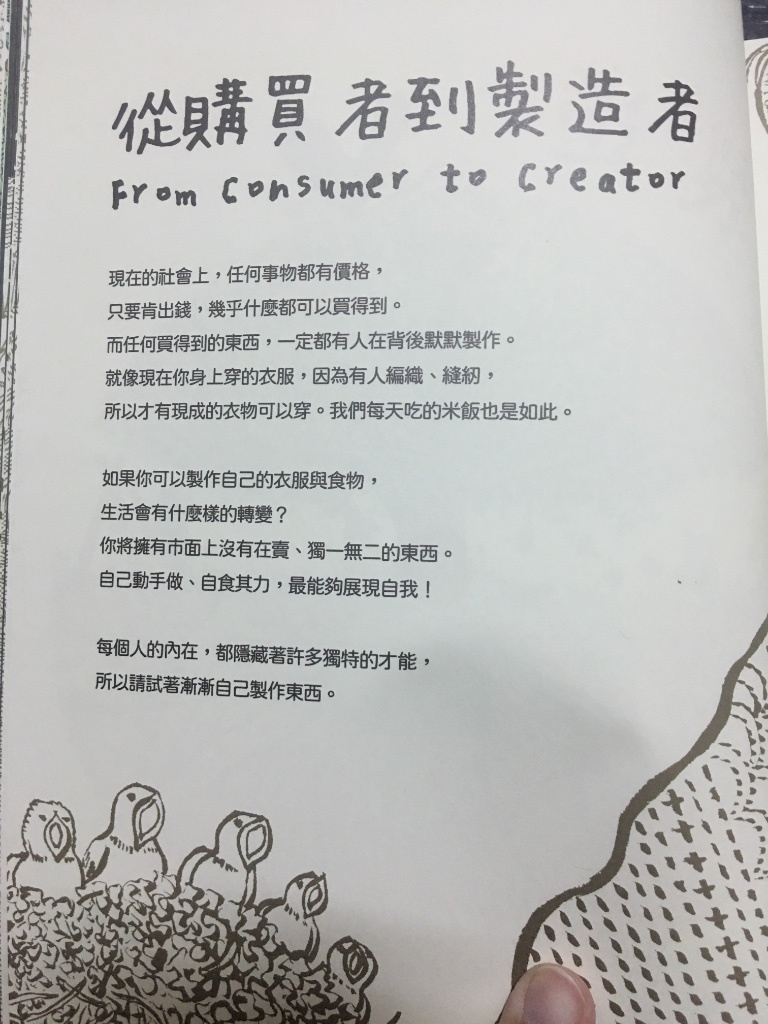 從購買者到製造者
From Consumer to Creator
現在的社會上，任何事物都有價格，
只要肯出錢，幾乎什麼都可以買得到。
而任何買得到的東西，一定都有人在背後默默製作。
就像現在你身上穿的衣服，因為有人編織、縫紉，
所以才有現成的衣物可以穿。我們每天吃的米飯也是如此。
如果你可以製作自己的衣服與食物，
生活會有什麼樣的轉變？
你將擁有市面上沒有在賣、獨一無二的東西。
自己動手做、自食其力，最能夠展現自我！
每個人的內在，都隱藏著許多獨特的才能，
所以請試著漸漸自己製作東西。